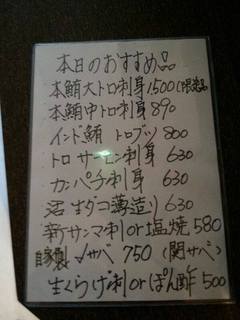 本日のおすすめ品
本鮪大トロ刺身1500(限定品
本鮪中トロ刺身 890
インド鮪 トロブツ 800
トロ サーモン刺身 630
カンパチ刺 630
活 生ダコ薄造り 630
新サンマ刺 or 塩焼 580
自家製 〆サバ 750 (関サバ)
生くらげ刺 or ぽん酢 500